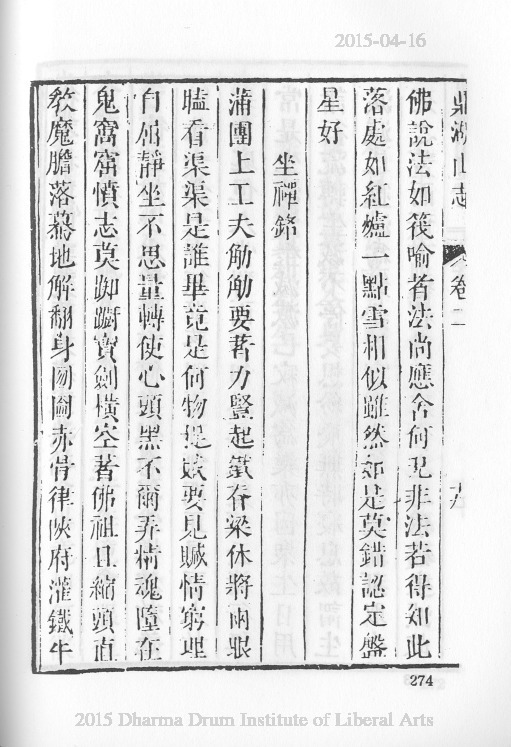 2015-04-16
鼎湖山志
卷二
佛說法如筏喻者法尚應舍何況非法若得知此
落處如紅爐一點雪相似雖然却是莫錯認定盤
星好
坐禪銘
蒲團上工夫勍勍要著力豎起鐵脊梁休將兩眼
瞌看渠渠是誰畢竟是何物是賊要見贓情窮理
自屈靜坐不思量轉使心頭黑不爾弄精魂墮在
鬼窩窟憤志莫踟躕寶劍橫空著佛祖且縮頭直
教魔膽落驀地解翻身圀圙赤骨律陝府灌鐵牛
274
2015 Dharma Drum Institute of Liberal Arts